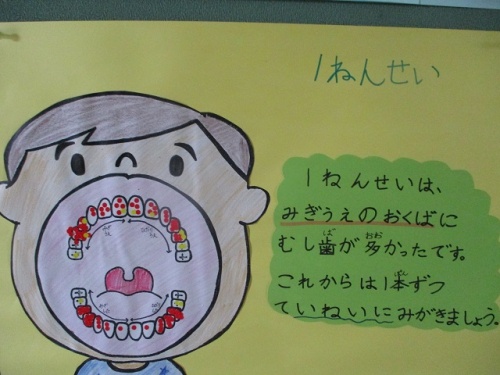 1ねんせい
1ねんせいは、
みぎうえのおくばに
むし歯が多かったです。
これからは1本ずつ
ていねいにみがきましょう。